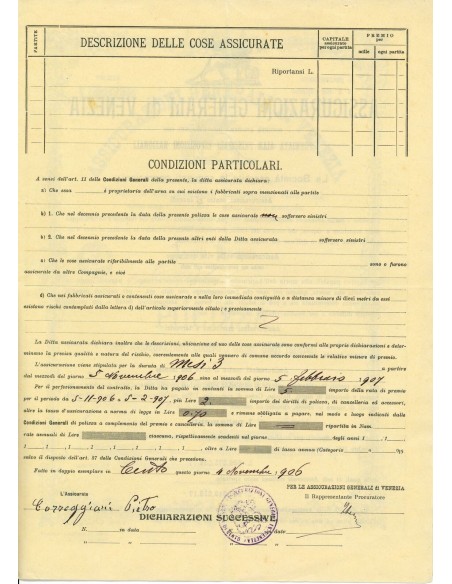 PARTITE
DESCRIZIONE DELLE COSE ASSICURATE
CAPITALE
assicurato
per ogni partita
PREMIO
per
mille
ogni partita
Riportansi L.
CONDIZIONI PARTICOLARI.
A sensi dell'art. 11 delle Condizioni Generali della presente, la ditta assicurata dichiara:
a) Che essa è proprietaria dell'area su cui esistono i fabbricati sopra menzionati alle partite
b) 1. Che nel decennio precedente la data della presente polizza le cose assicurate non soffersero sinistri
b) 2. Che nel decennio precedente la data della presente altri enti della Ditta assicurata soffersero sinistri
c) Che le cose assicurate riferibilmente alle partite sono o furono
assicurate da altre Compagnie, e cioè
d) Che nei fabbricati assicurati o contenenti cose assicurate e nella loro immediata contiguità o a distanza minore di dieci metri da essi
esistono rischi contemplati dalla lettera d) dell'articolo superiormente citato; e precisamente
La Ditta assicurata dichiara inoltre che le descrizioni, ubicazione ed uso delle cose assicurate sono conformi alle proprie dichiarazioni e determinano
la precisa qualità e natura del rischio, correlativamente alle quali vennero di comune accordo convenute le relative misure di premio.
L'assicurazione viene stipulata per la durata di Mesi 3 a partire
dal mezzodì del giorno 5 Novembre 1906 sino al mezzodì del giorno 5 febbraio 1907
Per il perfezionamento del contratto, la Ditta ha pagato in contanti la somma di Lire 5 importo della rata di premio
per il periodo da 5-11-906 a 5-2-907, più Lire 2. importo dei diritti di polizza, di cancelleria ed accessori,
oltre la tassa d'assicurazione a norma di legge in Lire 0.70 e rimane obbligata a pagare, nel modo e luogo indicati dalle
Condizioni Generali di polizza a complemento del premio e cancelleria, la somma di Lire ripartita in Num.
rate annuali di Lire ciascuna, rispettivamente scadenti nel giorno degli anni 1
oltre a Lire di tassa annua (Categoria
salvo il disposto dell'art. 57 delle Condizioni Generali che precedono.
Fatto in doppio esemplare in Cento questo giorno 4 Novembre 1906
PER LE ASSICURAZIONI GENERALI DI VENEZIA
Il Rappresentante Procuratore
L'Assicurato
Correggiari Pietro
DICHIARAZIONI SUCCESSIVE
Il, su data
su data